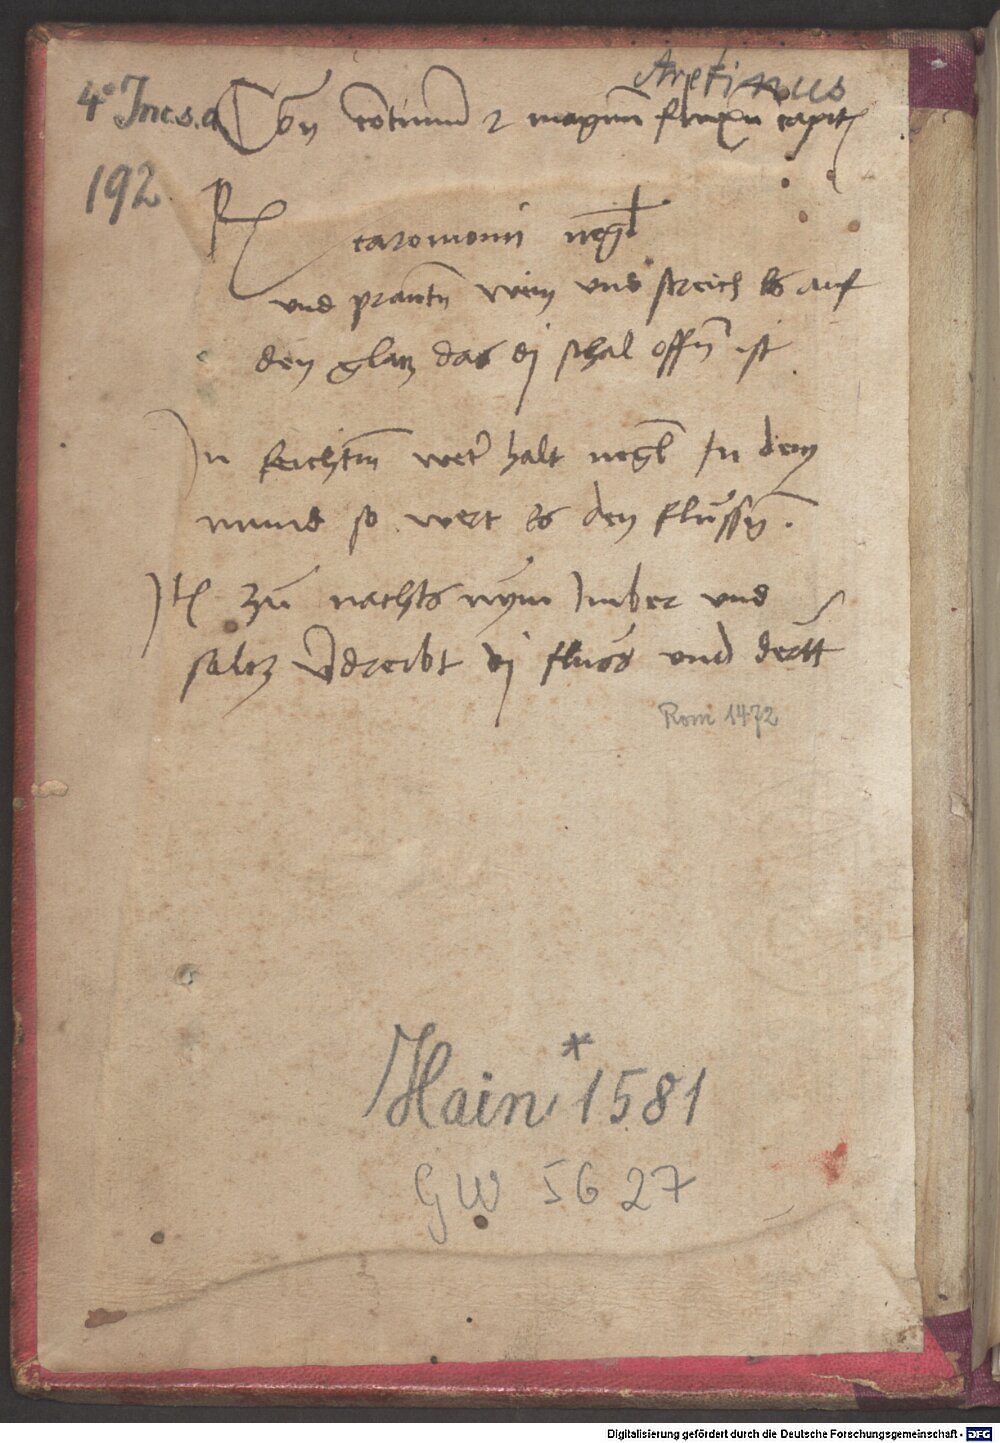 Aretinus
4° Inc. s. a.
192.
Con cōtinuū et magnū fluxū capit
Rc cardomomi negl
und prantn wein und streich es auf
den glatz das dj schal offn ist
In feichtm weter halt negl In dem
mund so wert es den flussn.
Itē zu nachts nym Imber und
saltz v̄dreibt dj fluss und derrt
Rom 1472
Hain * 1581
GW 5627
Digitalisierung gefördert durch die Deutsche Forschungsgemeinschaft - DFG